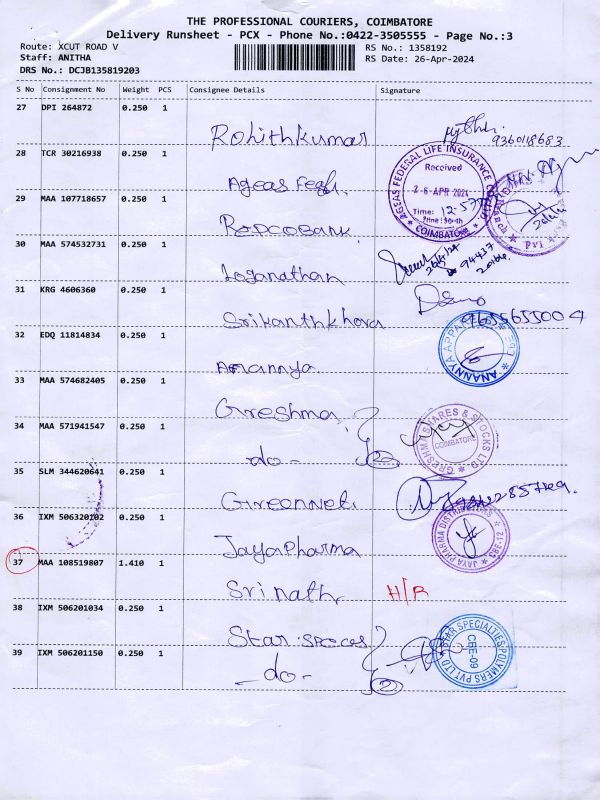 THE PROFESSIONAL COURIERS, COIMBATORE
Delivery Runsheet - PCX - Phone No.:0422-3505555 - Page No.:3
Route: XCUT ROAD V
RS No.: 1358192
Staff: ANITHA
RS Date: 26-Apr-2024
DRS No.: DCJB135819203
S No Consignment No Weight PCS Consignee Details Signature
27 DPI 264872 0.250 1 Rohithkumar 9360118683
28 TCR 30216938 0.250 1 Ageas Fegh.
AGEAS FEDERAL LIFE INSURANCE
Received
26 APR 2024
Time: 12:57
COIMBATORE
29 MAA 107718657 0.250 1 Repcobank
Pvt
30 MAA 574532731 0.250 1 Loganathan
26/4/24
94437
31 KRG 4606360 0.250 1 Srikanthkhora
9655655004
32 EDQ 11814834 0.250 1 Anannya
ANANNYA APPARELS
33 MAA 574682405 0.250 1 Greeshma
34 MAA 571941547 0.250 1 -do- 2
GRESHMA SHARES & STOCKS LTD
COIMBATORE
35 SLM 344620641 0.250 1 Greenneti
36 IXM 506320102 0.250 1 JayaPharma
JAYA PHARMA DISTRIBUTORS
37 MAA 108519807 1.410 1 Srinath H/R
38 IXM 506201034 0.250 1 Star speces
STAR SPECIALTIES POLYMERS PVT LTD
CBE-09
39 IXM 506201150 0.250 1 -do- 2